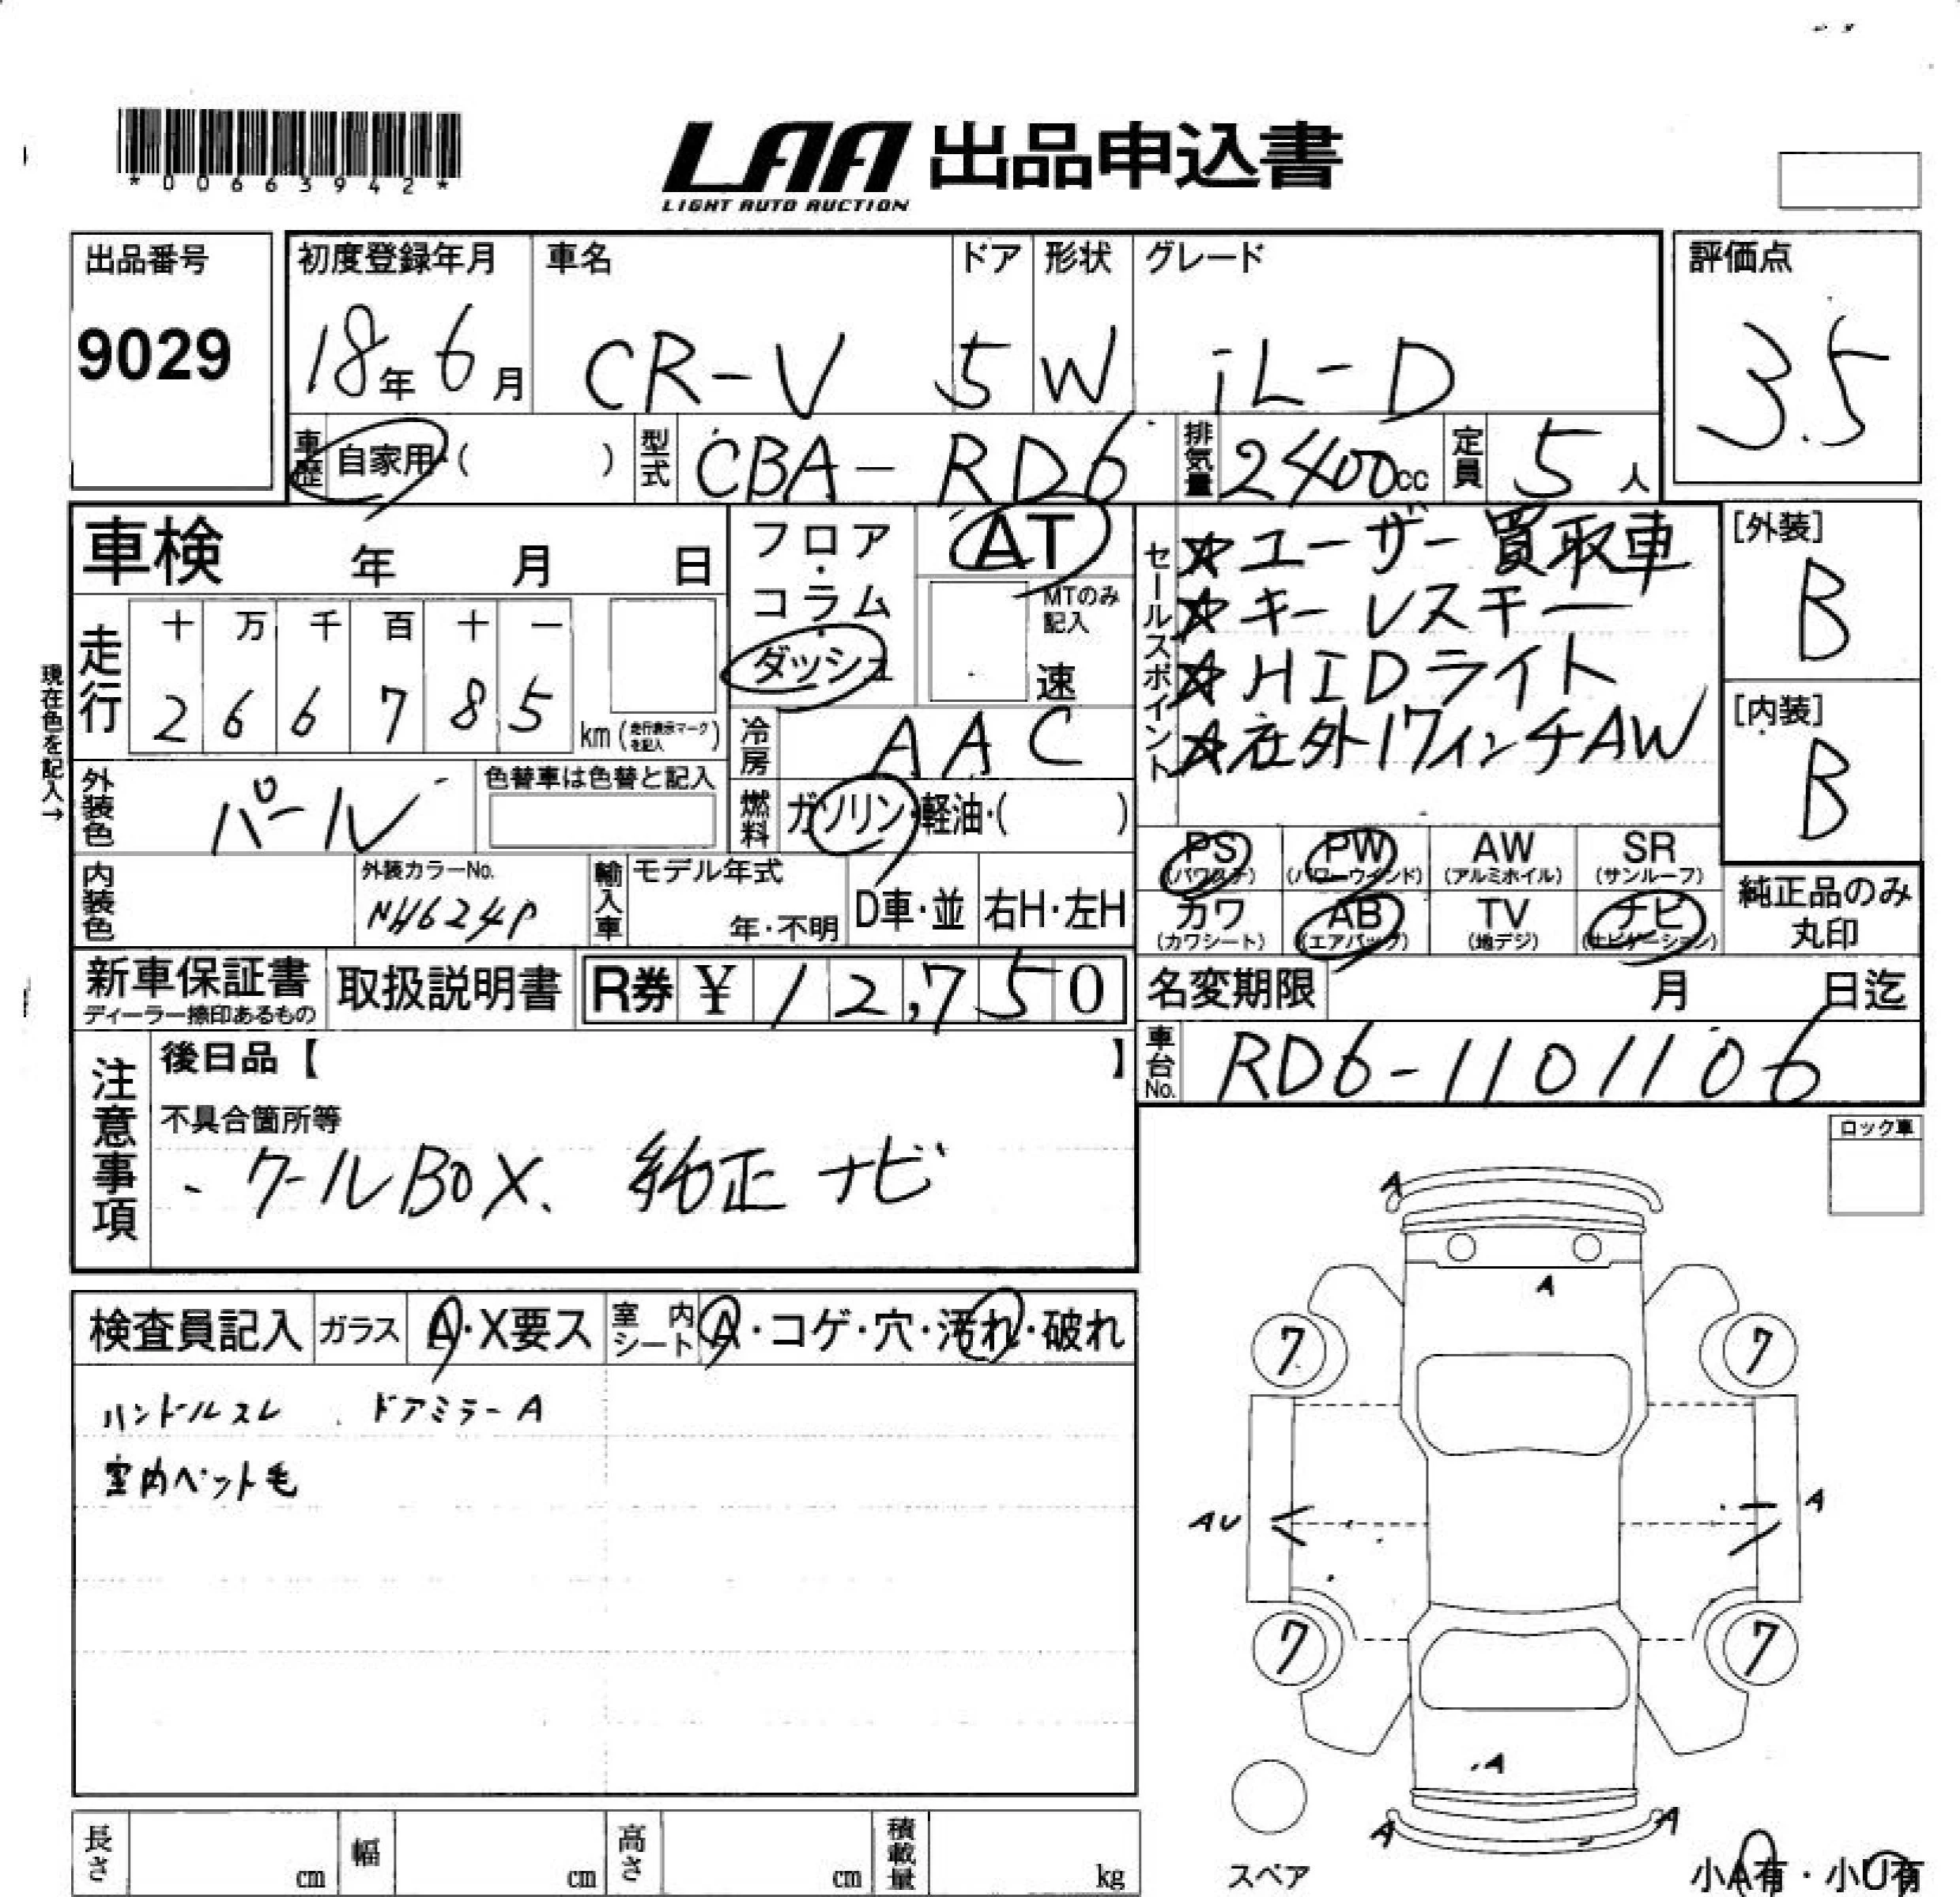 *00663942*
LAA 出品申込書
LIGHT AUTO AUCTION
出品番号
9029
初度登録年月
18年 6月
車名
CR-V
ドア
5
形状
W
グレード
iL-D
評価点
3.5
車歴 自家用・( )
型式 CBA-RD6
排気量 2400cc
定員 5人
車検 年 月 日
フロア・コラム
ダッシュ
AT
MTのみ記入
速
走行
十 万 千 百 十 一
2 6 6 7 8 5 km (走行表示マークを記入)
現在色を記入→
冷房 AAC
外装色 パール
色替車は色替と記入
燃料 ガソリン・軽油・( )
セールスポイント
☆ユーザー買取車
☆キーレスキー
☆HIDライト
☆社外17インチAW
[外装]
B
[内装]
B
PS (パワステ)
PW (パワーウインド)
AW (アルミホイル)
SR (サンルーフ)
カワ (カワシート)
AB (エアバッグ)
TV (地デジ)
ナビ (ナビゲーション)
純正品のみ
丸印
内装色
外装カラーNo.
NH624P
輸入車
モデル年式
年・不明
D車・並
右H・左H
新車保証書
ディーラー捺印あるもの
取扱説明書
R券 ¥ 12,750
名変期限 月 日迄
車台No. RD6-1101106
注意事項
後日品【 】
不具合箇所等
クールBOX、純正ナビ
ロック車
検査員記入
ガラス A・X要ス
室内シート A・コゲ・穴・汚れ・破れ
ハンドルスレ 、ドアミラーA
室内ペット毛
A
A
7 7
AU
A
7 7
A
A A
スペア
小A有・小U有
長さ cm
幅 cm
高さ cm
積載量 kg